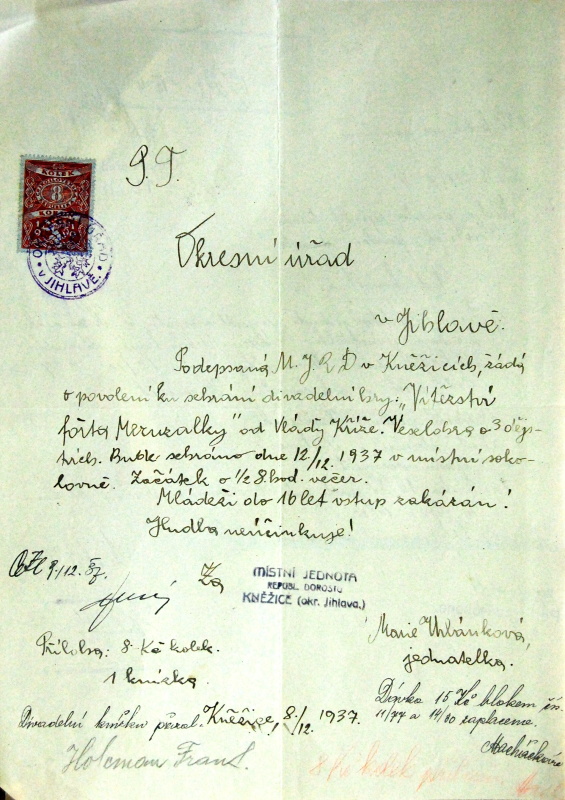 P.T.
KOLEK
8
OKRESNÍ ÚŘAD
V JIHLAVĚ.
Okresní úřad
v Jihlavě.
Podepsaná M.J.R.D v Kněžicích, žádá
o povolení ku sehrání divadelní hry: „Vítězství
förta Meruzalky" od Vlády Kříže. Veselohra o 3 dějs-
tvích. Bude sehráno dne 12/12. 1937 v místní soko-
lovně. Začátek o ½ 8. hod. večer.
Mládeži do 16 let vstup zakázán!
Hudba neúčinkuje!
9./12.
Za
MÍSTNÍ JEDNOTA
REPUBL. DOROSTU
KNĚŽICE (okr. Jihlava.)
Marie Urbánková,
jednatelka.
Příloha: 8 Kč kolek.
1 knížka.
Dávka 15 Kč blokem čís.
11/77 a 14/80 zaplacena.
Macháčková
Kněžice, 8./12. 1937.
Divadelní knížku
Holcman Frant.
8 Kč kolek